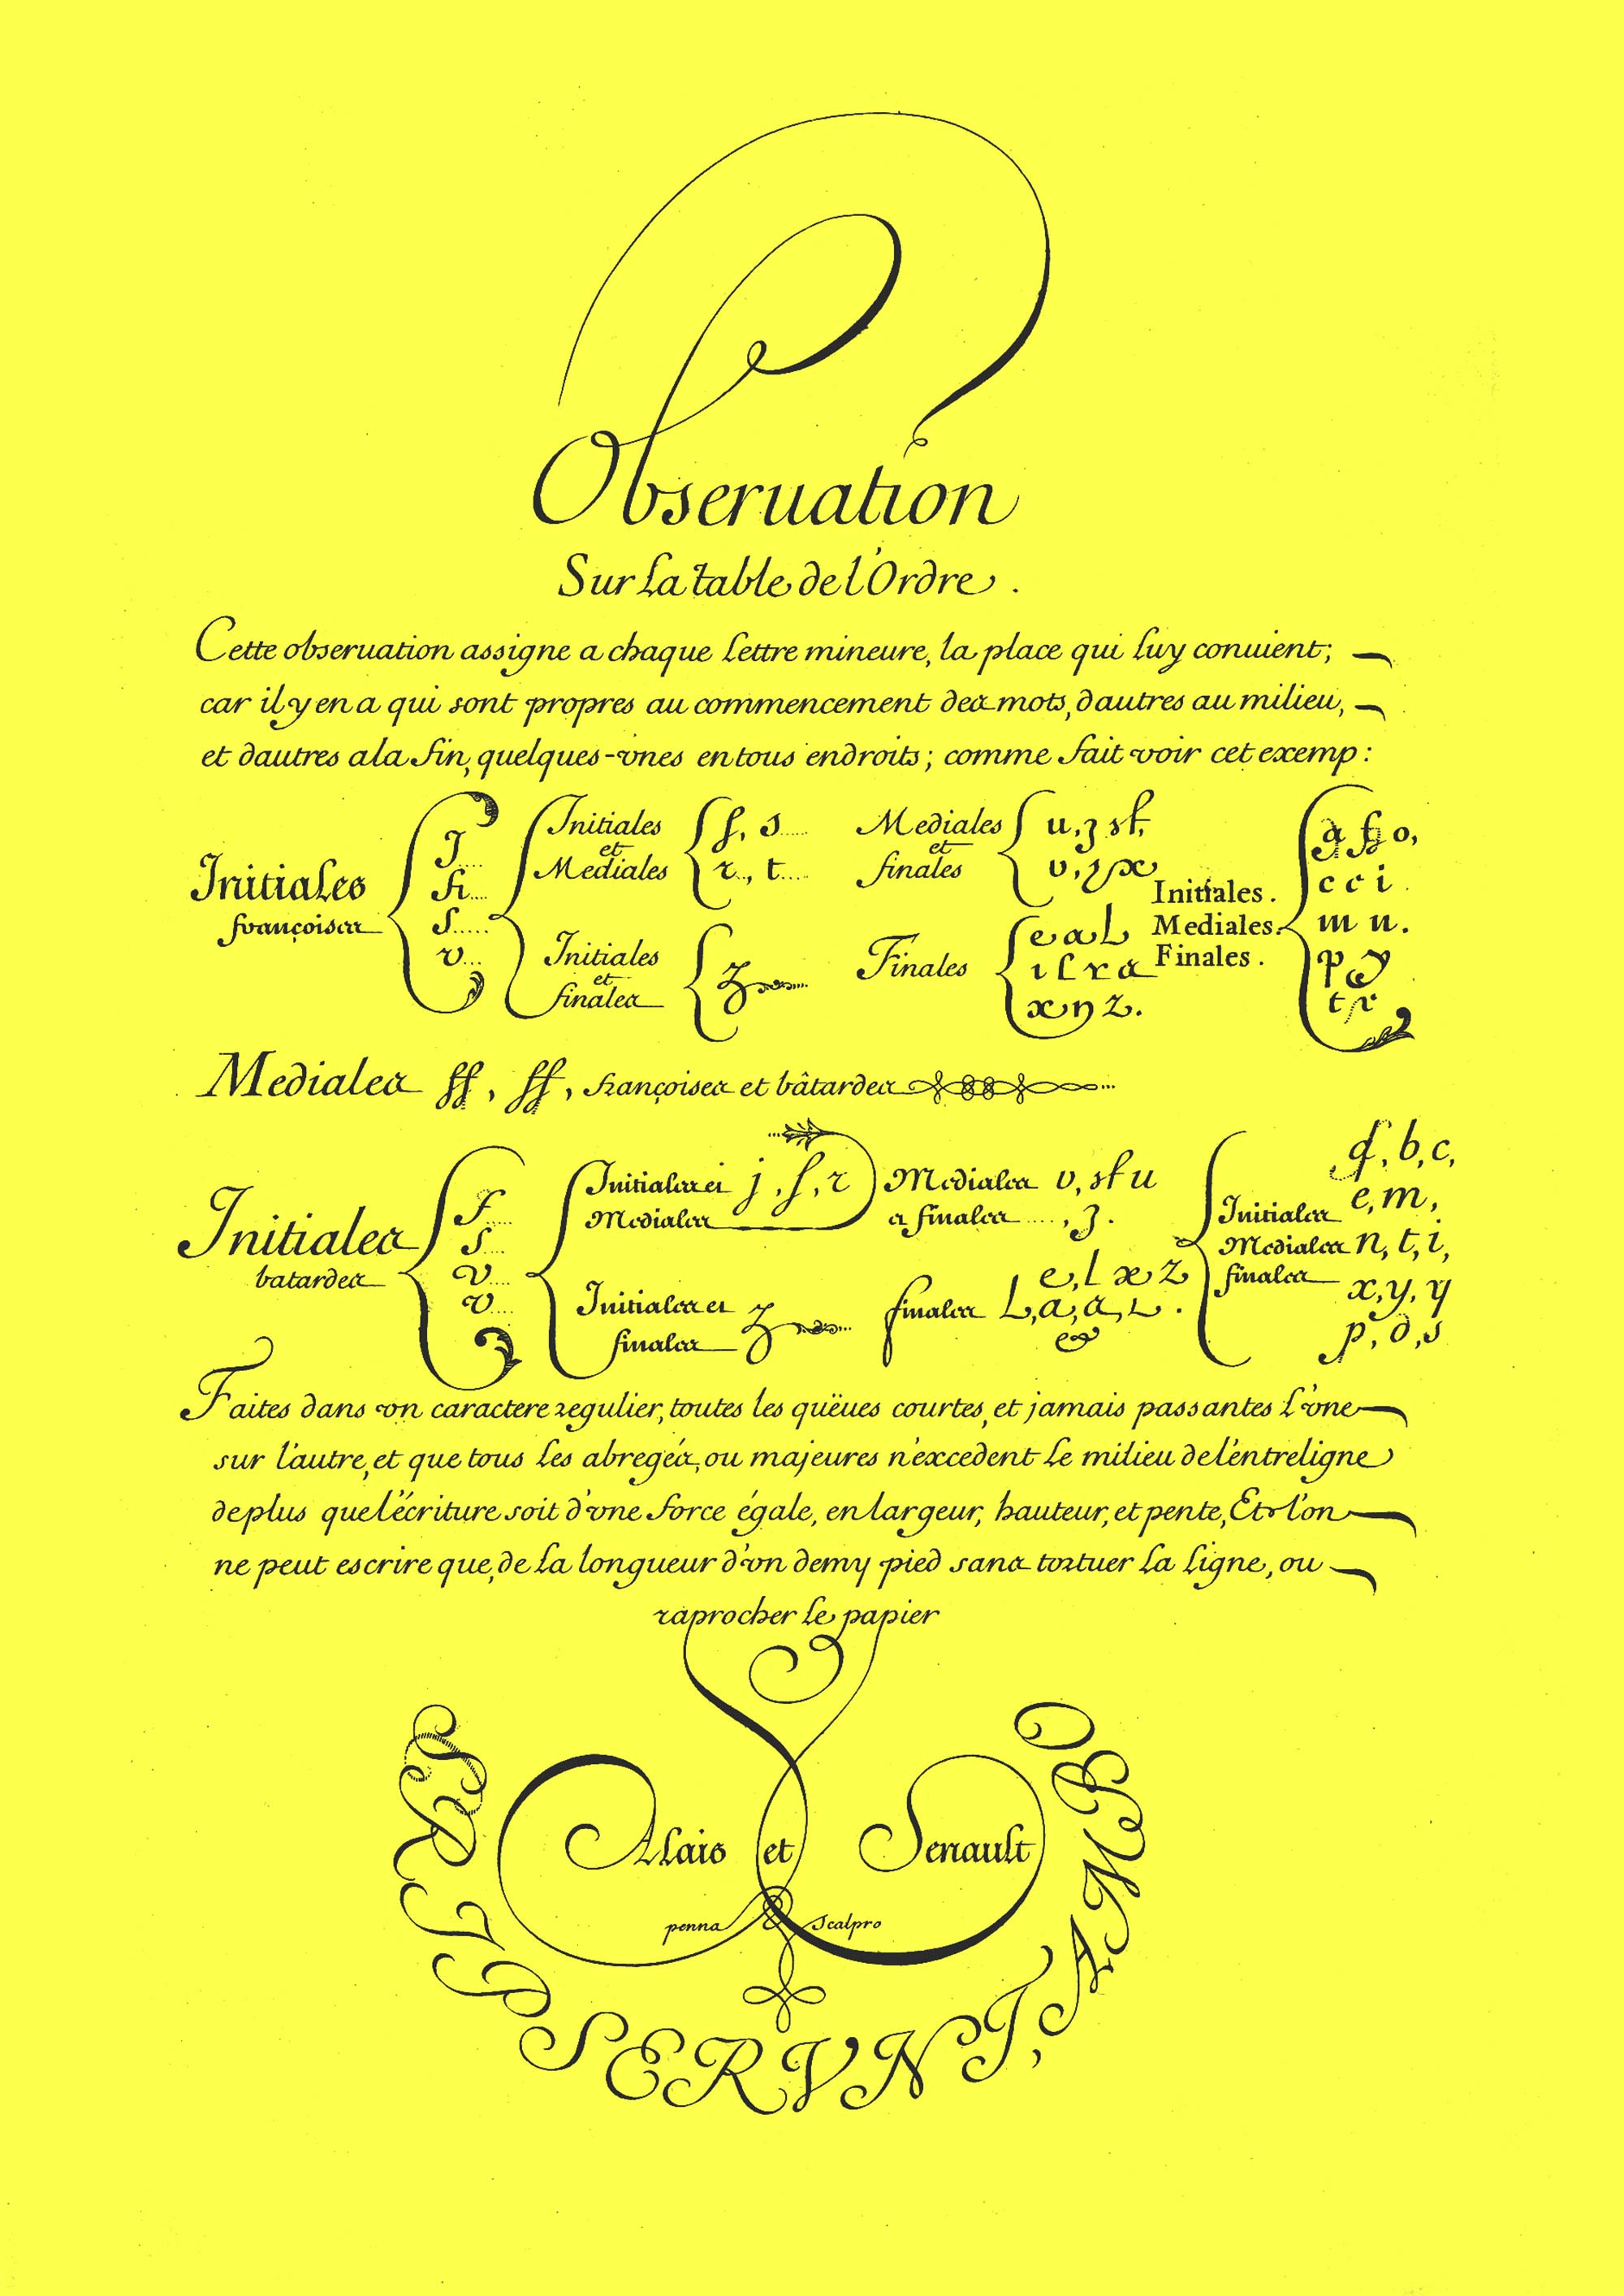 Obseruation
Sur la table de l'Ordre.
Cette obseruation assigne a chaque lettre mineure, la place qui luy conuient;
car il y en a qui sont propres au commencement des mots, dautres au milieu,
et dautres a la fin, quelques-vnes en tous endroits; comme fait voir cet exemp:
Initiales
françoises
J....
fi....
s.....
v...
Initiales
et
Mediales
f, s.....
r.., t....
Initiales
et
finales
z
Mediales
et
finales
u, z sf,
Finales
e a L
x n z.
Initiales.
Mediales.
Finales.
c c i.
m n.
p y
t r
Mediales ff, ff, françoises et bâtardes
Initiales
batardes
f....
s....
v....
v....
Initiales et
Mediales
j, f, r
Mediales v, sf u
a finales ...., z.
Initiales et
finales
z
finales
e, l x z
L, a, a, L.
&
Initiales
Mediales
finales
q, b, c,
e, m,
n, t, i,
x, y, y
p, d, s
Faites dans vn caractere regulier, toutes les quëues courtes, et jamais passantes l'vne
sur l'autre, et que tous les abregés, ou majeures n'excedent le milieu de l'entreligne
de plus que l'écriture soit d'vne force égale, en largeur, hauteur, et pente, Et l'on
ne peut escrire que, de la longueur d'vn demy pied sans tortuer la ligne, ou
raprocher le papier
Alais et Senault
penna Scalpro
SCRIPSERVNT, AMBO